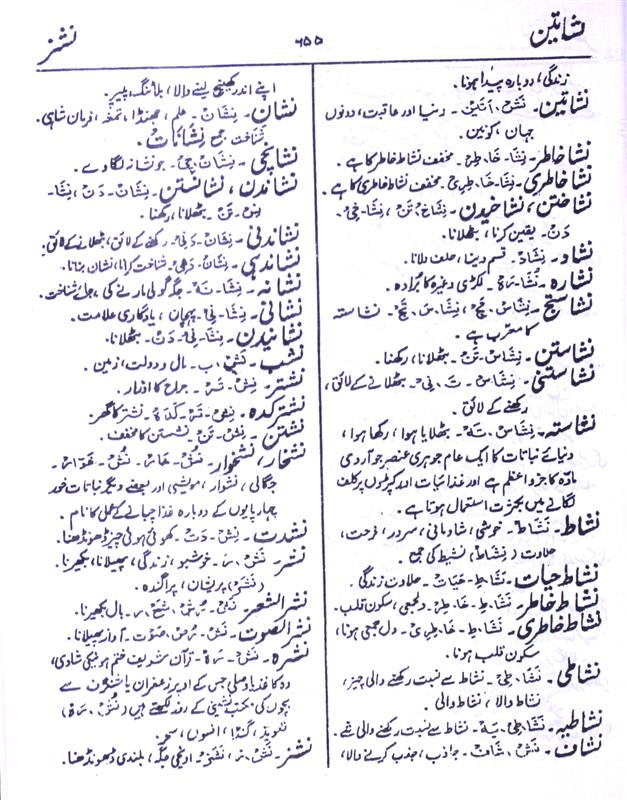 نشاتین
۶۵۵
نشنز
زندگی، دوبارہ پیدا ہونا۔
نشاتین۔ نَش۔ اَتَین۔ دنیا اور عاقبت، دونوں
جہان، کونین۔
نشاخاطر۔ نِشَا۔ خَا۔ طِر۔ مخفف نشاط خاطر کا ہے۔
نشاخاطری۔ نِشَا۔ خَا۔ طِرِی۔ مخفف نشاط خاطری کا ہے۔
نشاختن، نشاخیدن۔ نِشَاخ۔ تَن، نِشَا۔ خِی۔
دَن۔ یقین کرنا، بٹھلانا۔
نشاد۔ نِشَاد۔ قسم دینا، حلف دلانا۔
نشارہ۔ نُشَا۔ رَہ۔ لکڑی وغیرہ کا بُرادہ۔
نشاستج۔ نِشَاس۔ تَج، نِشَا۔ سَ۔ تَج۔ نشاستہ
کا معرب ہے۔
نشاستن۔ نِشَاس۔ تَن۔ بٹھلانا، رکھنا۔
نشاستنی۔ نِشَاس۔ تَ۔ نِی۔ بٹھلانے کے لائق،
رکھنے کے لائق۔
نشاستہ۔ نِشَاس۔ تَہ۔ بٹھلایا ہوا، رکھا ہوا،
دنیائے نباتات کا ایک عام جوہری عنصر جو آردی
مادّہ کا جزو اعظم ہے اور غذائیات اور کپڑوں پر کلف
لگانے میں بکثرت استعمال ہوتا ہے۔
نشاط۔ نَشَاط۔ خوشی، شادمانی، سرور، فرحت،
حلاوت (نِشَاط) نشیط کی جمع۔
نشاط حیات۔ نَشَا۔ طِ۔ حَیَات۔ حلاوت زندگی۔
نشاط خاطر۔ نَشَا۔ طِ۔ خَا۔ طِر۔ دلجمعی، سکون قلب۔
نشاط خاطری۔ نَشَا۔ طِ۔ خَا۔ طِرِی۔ دل جمعی ہونا،
سکون قلب ہونا۔
نشاطی۔ نَشَا۔ طِی۔ نشاط سے نسبت رکھنے والی چیز،
نشاط والا، نشاط والی۔
نشاطیہ۔ نَشَا۔ طِی۔ یَہ۔ نشاط سے نسبت رکھنے والی شے۔
نشاف۔ نَش۔ شَاف۔ جاذب، جذب کرنے والا،
اپنے اندر کھینچ لینے والا، بلاٹنگ پیپر۔
نشان۔ نِشَان۔ علم، جھنڈا، تمغہ، فرمان شاہی،
شناخت جمع نِشَانَات۔
نشانچی۔ نِشَان۔ چِی۔ جو نشانہ لگا دے۔
نشاندن، نشانستن۔ نِشَان۔ دَن، نِشَا۔
نِس۔ تَن۔ بٹھلانا، رکھنا۔
نشاندنی۔ نِشَان۔ دَنِی۔ رکھنے کے لائق، بٹھلانے کے لائق۔
نشاندہی۔ نِشَان۔ دَہِی۔ شناخت کرانا، نشان بتانا۔
نشانہ۔ نِشَا۔ نَہ۔ جگہ گولی مارنے کی، جائے شناخت۔
نشانی۔ نِشَا۔ نِی۔ پہچان، یادگاری علامت۔
نشانیدن۔ نِشَا۔ نِی۔ دَن۔ بٹھلانا۔
نشب۔ نَش۔ ب۔ مال و دولت، زمین۔
نشتر۔ نِش۔ تَر۔ جراح کا اوزار۔
نشتر کدہ۔ نِش۔ تَر۔ کَدَہ۔ نشتر کا گھر۔
نشتن۔ نِش۔ تَن۔ نشستن کا مخفف۔
نشخار، نشخوار۔ نُش۔ خَار۔ نُش۔ خَوَار۔
جگالی، نشوار، مویشی اور بعضے دیگر نباتات خور
چارپایوں کے دوبارہ غذا چبانے کے عمل کا نام۔
نشدت۔ نِش۔ دَت۔ کھوئی ہوئی چیز ڈھونڈھنا۔
نشر۔ نَش۔ ر۔ خوشبو، زندگی، پھیلانا، بکھیرنا۔
(نَشَر) پریشان، پراگندہ۔
نشرالشعر۔ نَش۔ رُش۔ شَع۔ ر۔ بال بکھیرنا۔
نشرالصوت۔ نَش۔ رُص۔ صَوت۔ آواز پھیلانا۔
نشرہ۔ نَش۔ رَہ۔ قرآن شریف ختم ہونیکی شادی،
وہ کاغذ یا وصلی جس کے اوپر زعفران یا شنگرف سے
بچوں کی مکتب نشینی کے روز لکھتے ہیں (نُش۔ رَہ)
تعویذ، گنڈا، افسوں، سحر۔
نشنز۔ نَش۔ ز، نَشَز۔ اونچی جگہ، بلندی ڈھونڈھنا۔